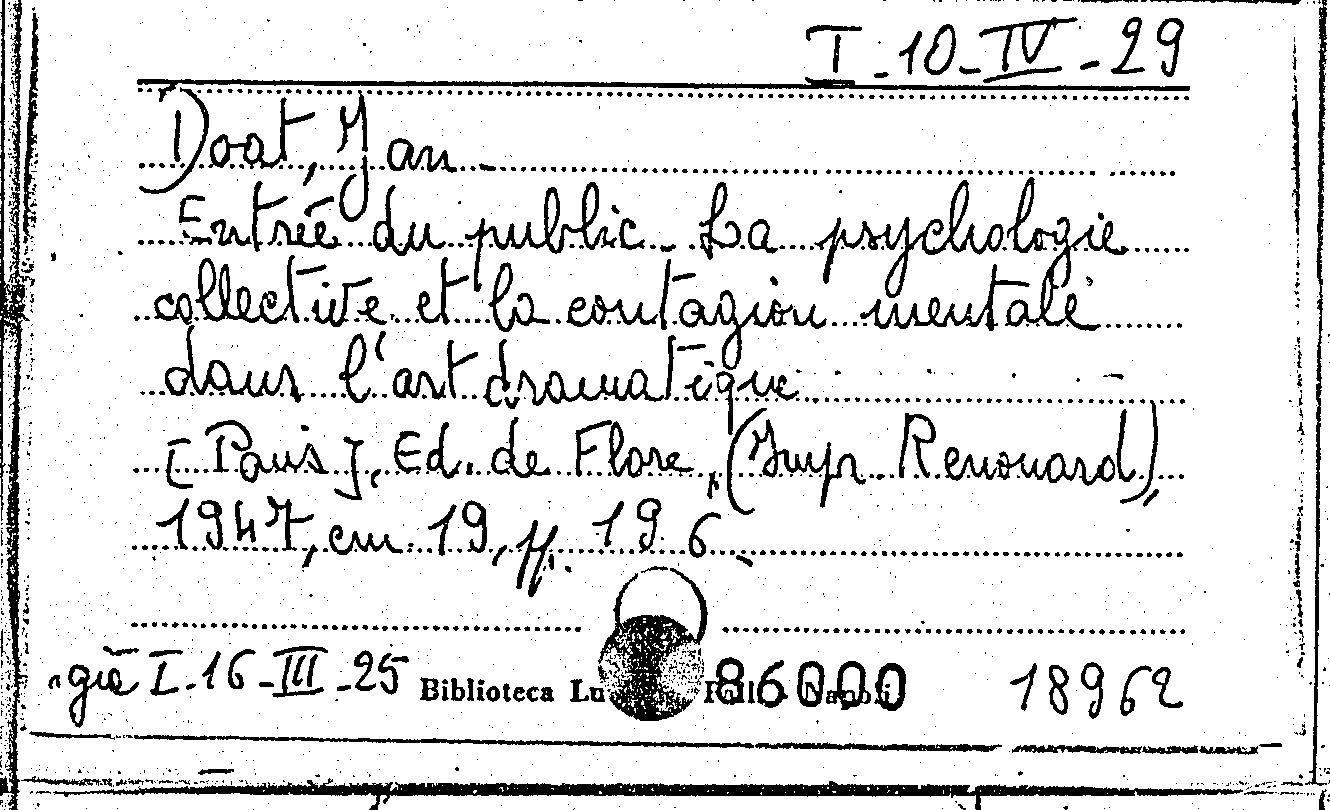 I-10-IV-29
Doat, Jan
Entrée du public. La psychologie
collective et la contagion mentale
dans l'art dramatique
[Paris], Ed. de Flore, (Impr. Renouard),
1947, cm. 19, pp. 196.
già I-16-III-25 Biblioteca Lu 86000 Napoli 18962